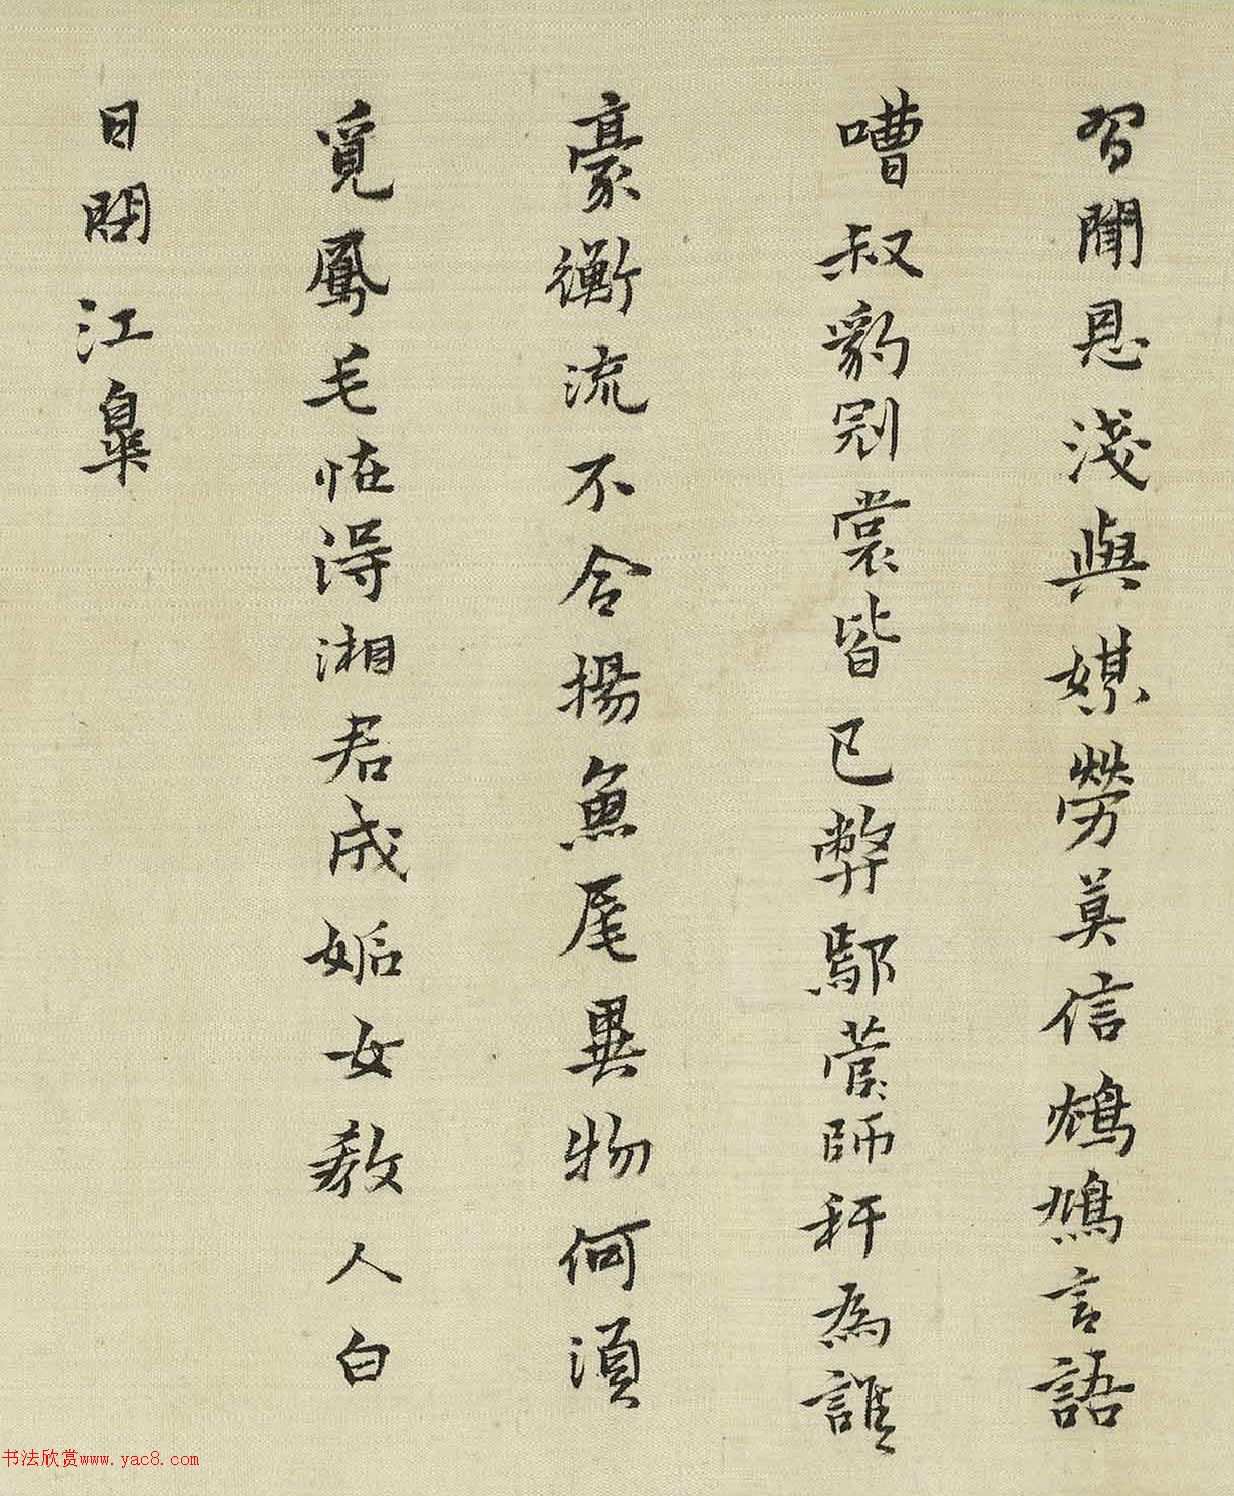 習聞恩淺與媒勞莫信鴆鳩言語
嘈叔豹冠裳皆已弊鄢師秤為誰
豪衡流不合揚魚尾異物何須
覓鳳毛恠得湘君成姤女教人白
日問江皋
书法欣赏www.yac8.com